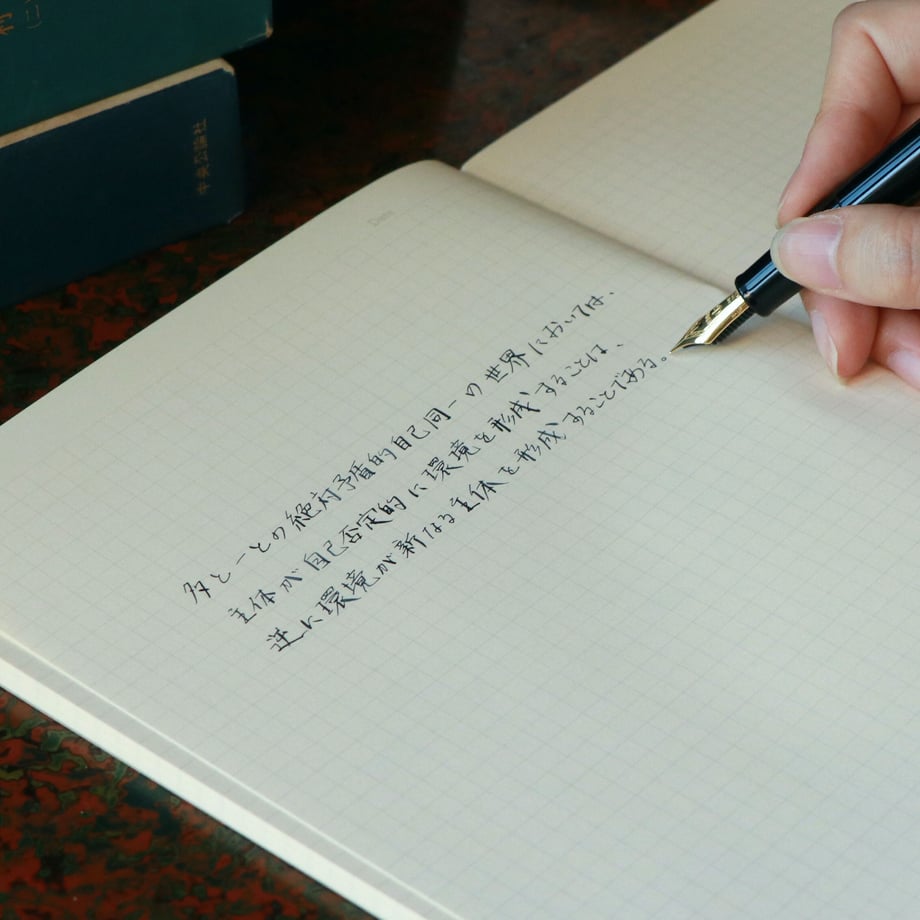 中央公論社
Date
多と一との絶対矛盾的自己同一の世界においては、
主体が自己否定的に環境を形成することは、
逆に環境が新なる主体を形成することである。